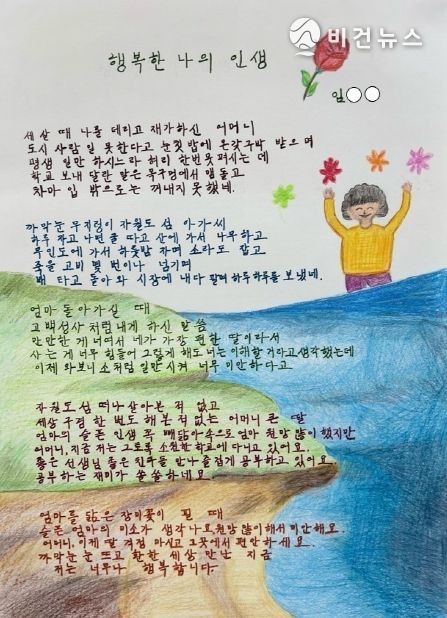 비건뉴스
행복한 나의 인생
임○○
세살 때 나를 데리고 재가하신 어머니
도시 사람 일 못한다고 눈칫밥에 온갖구박 받으며
평생 일만 하시느라 허리 한번 못 펴시는 데
학교 보내 달란 말은 목구멍에서 맴돌고
차마 입 밖으로는 꺼내지 못했네.
까막눈 무지렁이 자월도 섬 아가씨
하루 자고 나면 굴 따고 산에 가서 나무하고
무인도에 가서 하룻밤 자며 소라도 잡고
죽을 고비 몇 번이나 넘기며
배 타고 돌아와 시장에 내다 팔며 하루하루를 보냈네.
엄마 돌아가실 때
고백성사처럼 내게 하신 말씀
만만한 게 너여서 네가 가장 편한 딸이라서
사는 게 너무 힘들어 그렇게 해도 너는 이해할거라고 생각했는데
이제 와보니 소처럼 일만 시켜 너무 미안하다고
자월도 섬 떠나 살아본 적 없고
세상 구경 한 번도 해 본 적 없는 어머니 큰 딸
엄마의 슬픈 인생 꼭 빼닮아 속으로 엄마 원망 많이 했지만
어머니, 지금 저는 그토록 소원한 학교에 다니고 있어요.
좋은 선생님 좋은 친구를 만나 즐겁게 공부하고 있어요.
공부하는 재미가 쏠쏠하네요.
엄마를 닮은 장미꽃이 필 때
슬픈 엄마의 미소가 생각나요. 원망 많이해서 미안해요.
어머니, 이제 딸 걱정 마시고 그곳에서 편안하세요.
까막눈 눈 뜨고 환한 세상 만난 지금
저는 너무나 행복합니다.